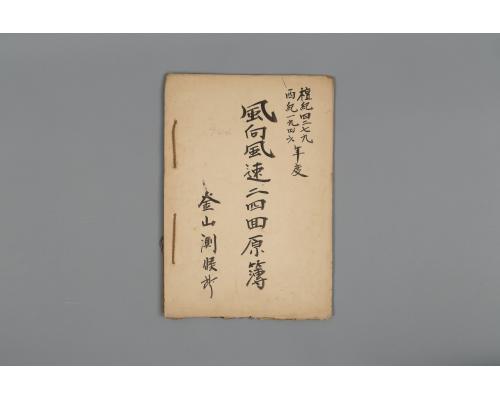 檀紀四二七九
西紀一九四六
年度
風向風速二四回原簿
釜山測候所